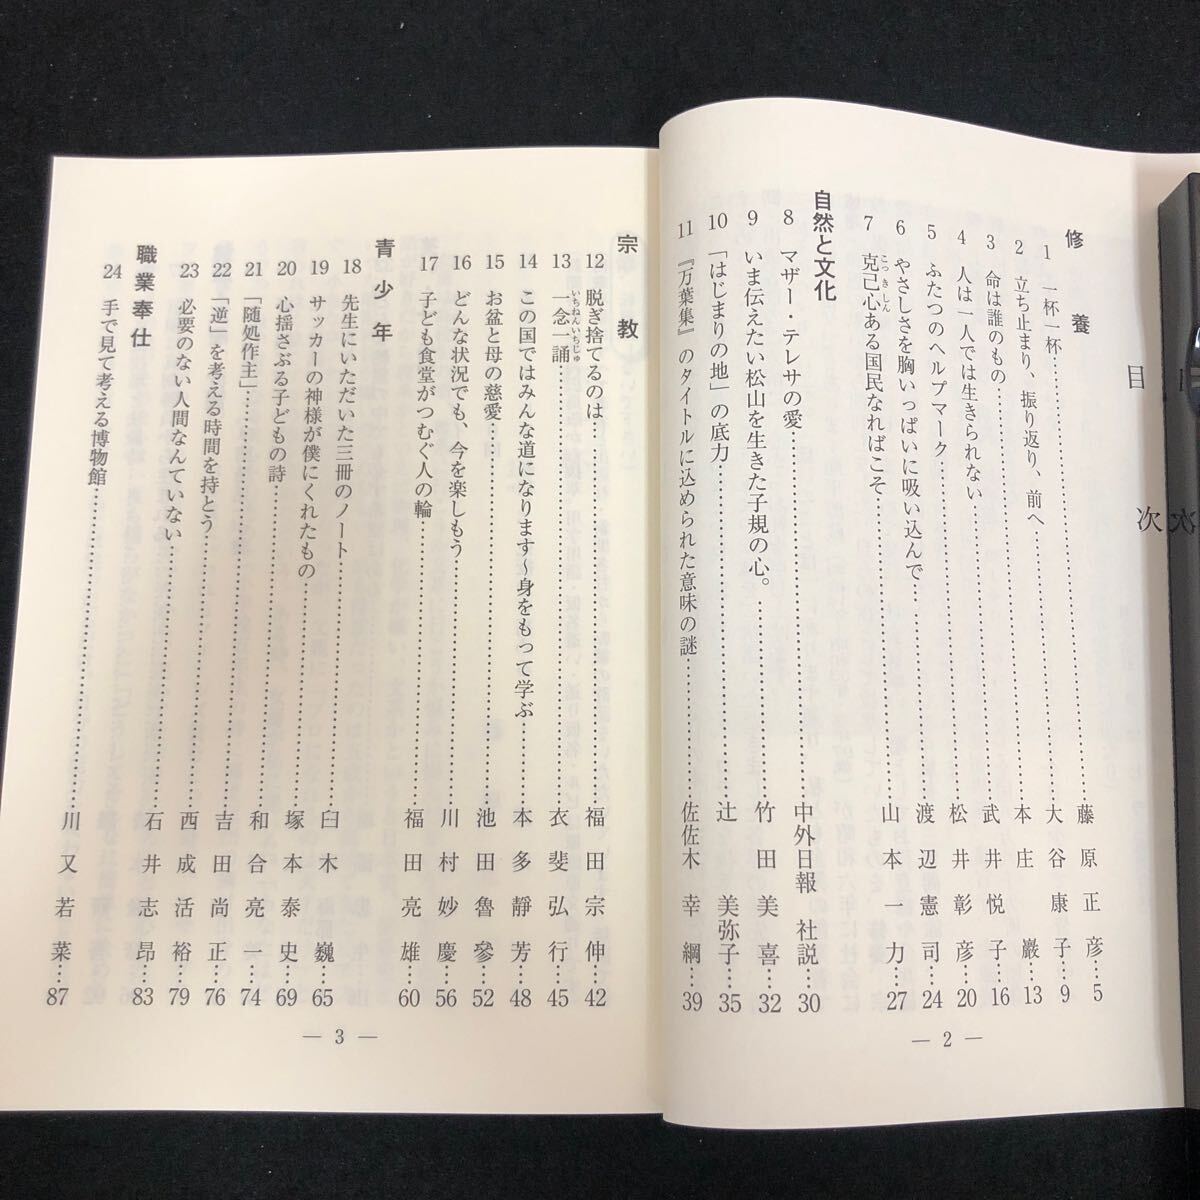 目次
修養
1 一杯一杯……藤原正彦…5
2 立ち止まり、振り返り、前へ……大谷康子…9
3 命は誰のもの……本庄巌…13
4 人は一人では生きられない……武井悦子…16
5 ふたつのヘルプマーク……松井彰彦…20
6 やさしさを胸いっぱいに吸い込んで……渡辺憲司…24
7 克己心ある国民なればこそ……山本一力…27
こっきしん
自然と文化
8 マザー・テレサの愛……中外日報 社説…30
9 いま伝えたい松山を生きた子規の心。……竹田美喜…32
10 「はじまりの地」の底力……辻美弥子…35
11 『万葉集』のタイトルに込められた意味の謎……佐佐木幸綱…39
— 2 —
宗教
12 脱ぎ捨てるのは……福田宗伸…42
13 一念一誦……衣斐弘行…45
いちねんいちじゅ
14 この国ではみんな道になります〜身をもって学ぶ……本多靜芳…48
15 お盆と母の慈愛……池田魯參…52
16 どんな状況でも、今を楽しもう……川村妙慶…56
17 子ども食堂がつむぐ人の輪……福田亮雄…60
青少年
18 先生にいただいた三冊のノート……臼木巍…65
19 サッカーの神様が僕にくれたもの……塚本泰史…69
20 心揺さぶる子どもの詩……和合亮一…74
21 「随処作主」……吉田尚正…76
22 「逆」を考える時間を持とう……西成活裕…79
23 必要のない人間なんていない……石井志昂…83
職業奉仕
24 手で見て考える博物館……川又若菜…87
— 3 —